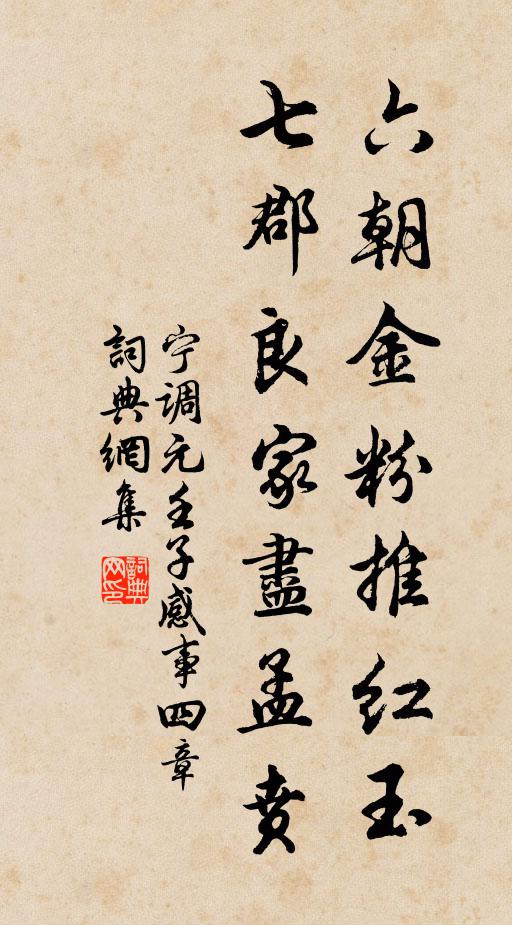 六朝金粉推红玉
七郡良家盡孟賁
宁调元壬子感事四章
詞典網集
詞典网印